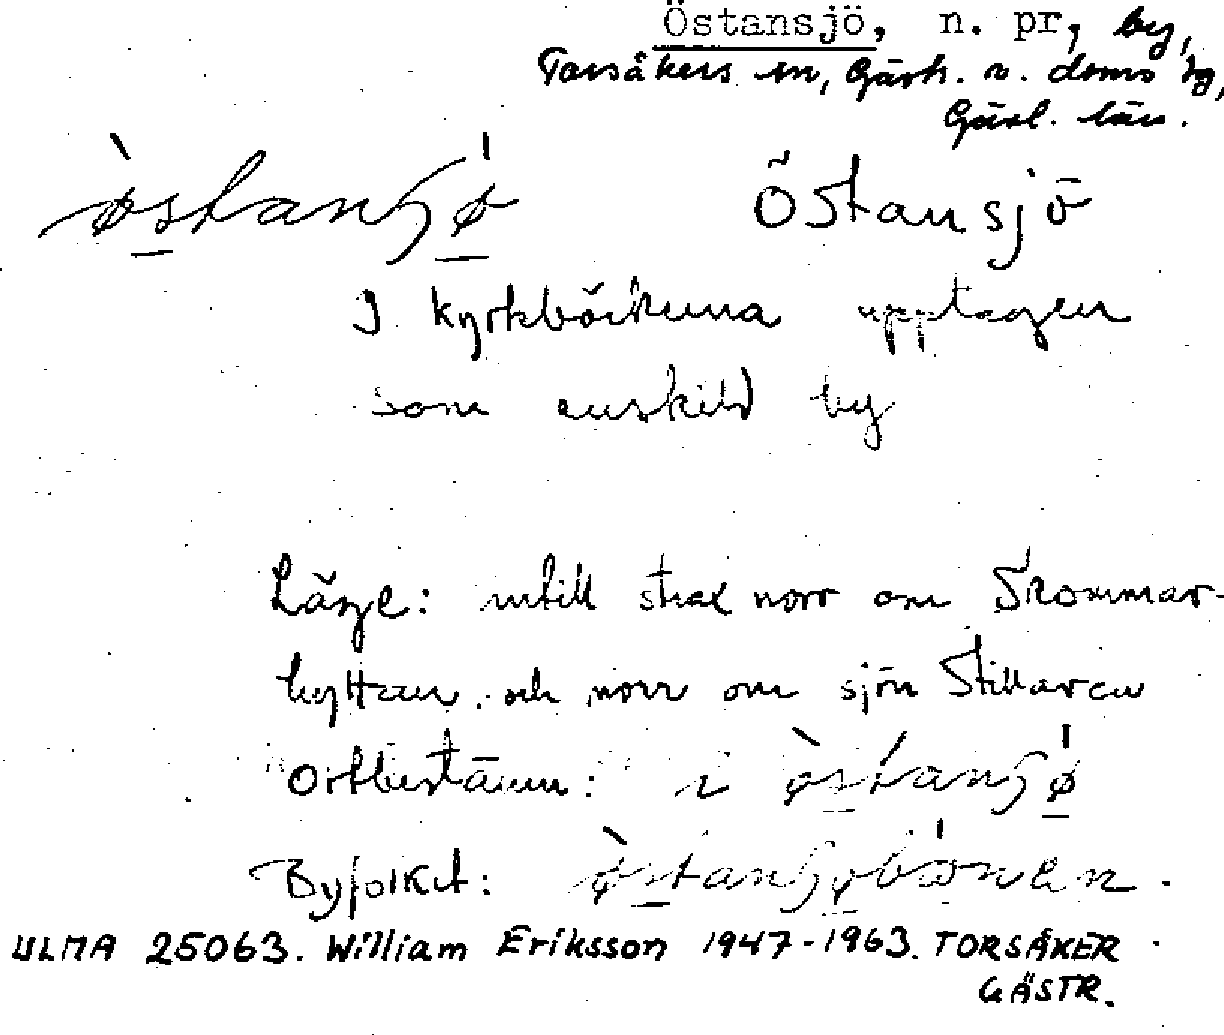 Östansjö, n. pr, by,
Torsåkers sn, Gästr. v. doms by,
Gävl. län.
Östansjö
I kyrkböckerna upptagen
som enskild by
Läge: intill strax norr om Skommar-
hyttan och norr om sjön Stillaren
Ortbestämn: i
Byfolket:
ULMA 25063. William Eriksson 1947-1963. TORSÅKER
GÄSTR.